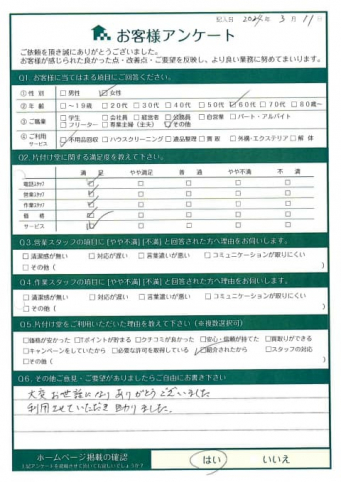 記入日 2024年 3月 11日
お客様アンケート
ご依頼を頂き誠にありがとうございました。
お客様が感じられた良かった点・改善点・ご要望を反映し、より良い業務に努めてまいります。
Q1.お客様に当てはまる項目にご回答ください。
①性別 □男性 ☑女性
②年齢 □〜19歳 □20代 □30代 □40代 □50代 ☑60代 □70代 □80歳〜
③ご職業 □学生 □会社員 □経営者 □公務員 □自営業 □パート・アルバイト
□フリーター □専業主婦(主夫) ☑その他
④ご利用サービス ☑不用品回収 □ハウスクリーニング □遺品整理 □買取 □外構・エクステリア □解体
Q2.片付け堂に関する満足度を教えて下さい。
満足 やや満足 普通 やや不満 不満
電話スタッフ ☑ □ □ □ □
営業スタッフ ☑ □ □ □ □
作業スタッフ ☑ □ □ □ □
価格 ☑ □ □ □ □
サービス ☑ □ □ □ □
Q3.営業スタッフの項目に[やや不満][不満]と回答された方へ理由をお伺いします。
□清潔感が無い □対応が遅い □言葉遣いが悪い □コミュニケーションが取りにくい
□その他( )
Q4.作業スタッフの項目に[やや不満][不満]と回答された方へ理由をお伺いします。
□清潔感が無い □対応が遅い □言葉遣いが悪い □コミュニケーションが取りにくい
□その他( )
Q5.片付け堂をご利用いただいた理由を教えて下さい(※複数選択可)
□価格が安かった □Tポイントが貯まる □クチコミが良かった □安心・信頼が持てた □買取りができる
□キャンペーンをしていたから □必要な許可を取得している ☑紹介されたから □スタッフの対応
□その他( )
Q6.その他ご意見・ご要望がありましたらご自由にお書き下さい
大変お世話になりありがとうございました
利用させていただき助かりました。
ホームページ掲載の確認
はい いいえ